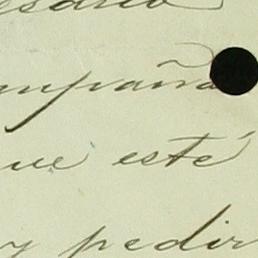 esario
mpaña
ue esté
y pedir